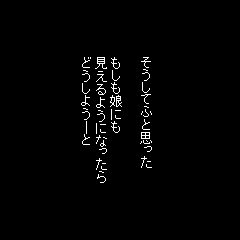 そうしてふと思った
もしも娘にも
見えるようになったら
どうしようーと